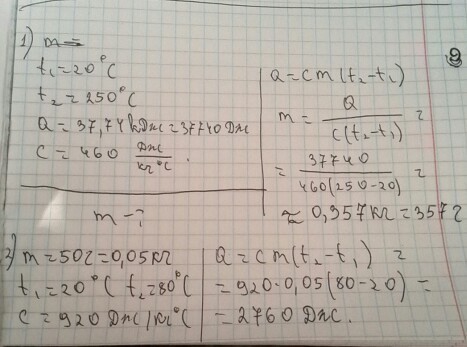 1) m=
t₁=20°C
t₂=250°C
Q=37,74кДж=37740Дж
C=460 Дж/кг°C.
m-?
Q=cm(t₂-t₁)
m= Q/c(t₂-t₁) =
= 37740/460(250-20) =
≈ 0,357кг=357г
2) m=50г=0,05кг
t₁=20°C t₂=80°C
c=920 Дж/кг°C
Q=cm(t₂-t₁) =
=920·0,05(80-20)=
=2760 Дж.